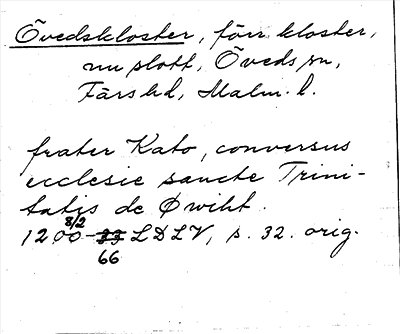 Övedskloster, förr kloster,
nu slott, Öveds sn,
Färs hd, Malm. l.
frater Kato, conversus
ecclesie sancte Trini-
tatis de Øwiht.
8/2
1200-33 LDLV, s. 32. orig.
66